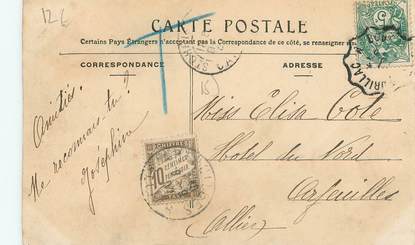 12€
CARTE POSTALE
Certains Pays Étrangers n'acceptant pas la Correspondance de ce côté, se renseigner
CORRESPONDANCE
ADRESSE
T
15
Amitiés.
Me reconnais-tu?
Joséphine
Miss Elisa Cole
Hotel du Nord
Arfeuilles
(Allier)
5
CHIFFRE
10
CENTIMES